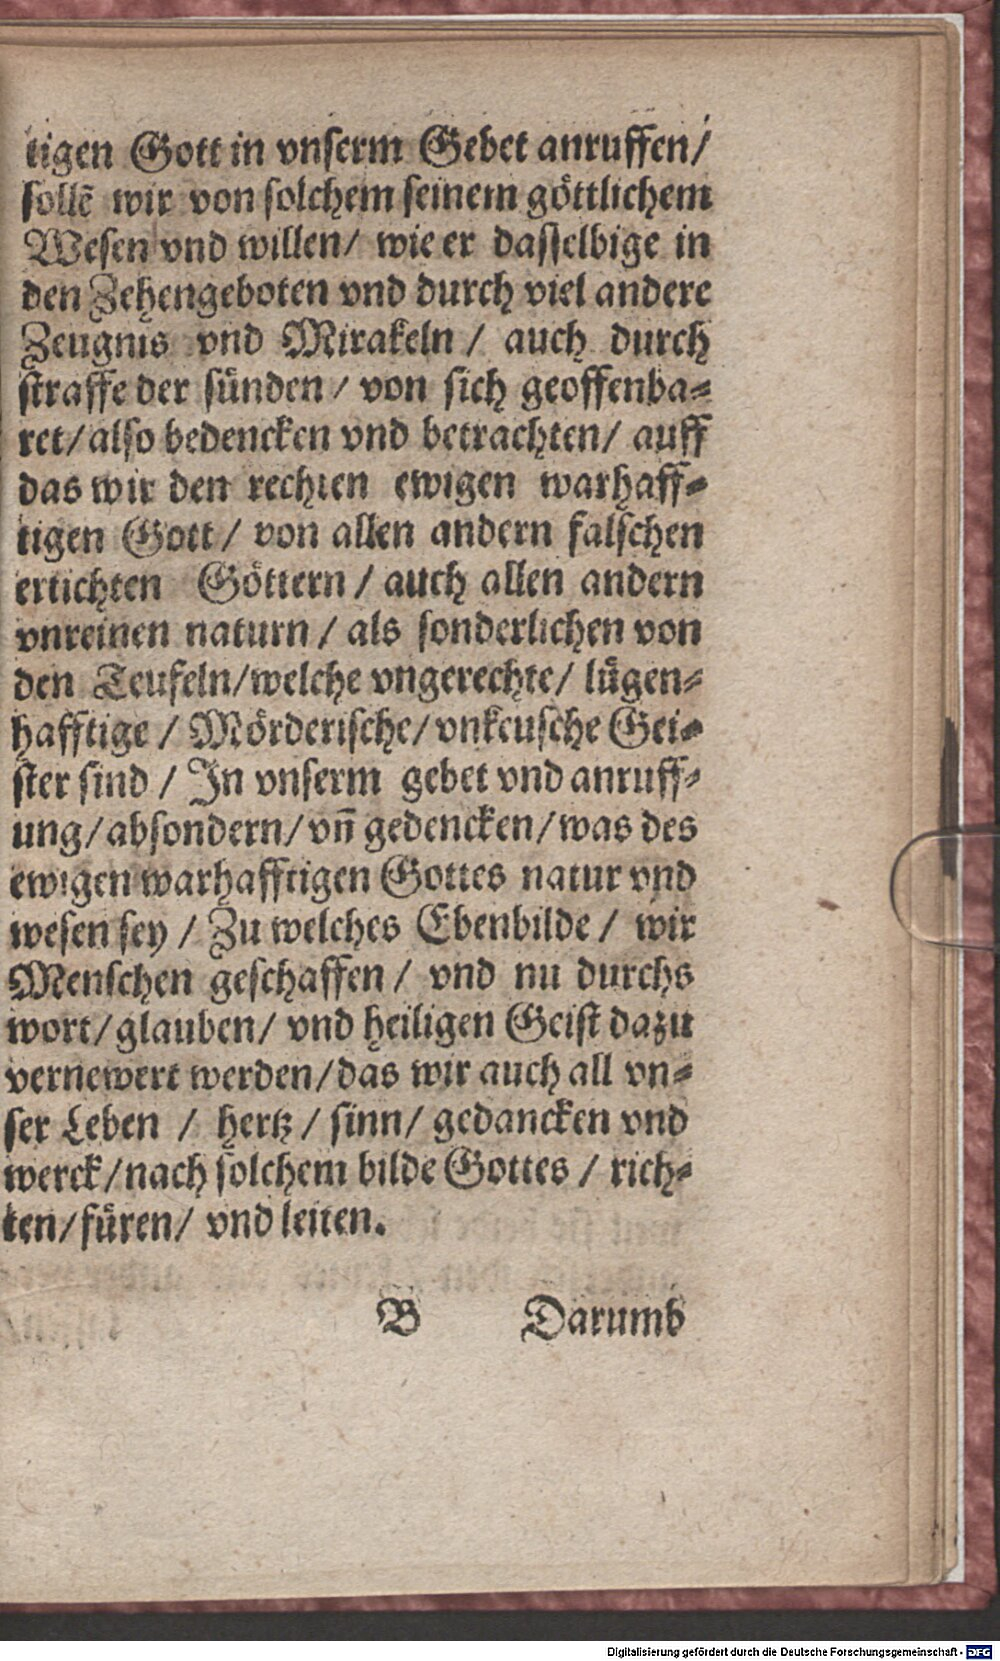 tigen Gott in vnserm Gebet anruffen/
sollē wir von solchem seinem göttlichem
Wesen vnd willen/ wie er dasselbige in
den Zehengeboten vnd durch viel andere
Zeugnis vnd Mirakeln / auch durch
straffe der sünden / von sich geoffenba⸗
ret/ also bedencken vnd betrachten/ auff
das wir den rechten ewigen warhaff⸗
tigen Gott / von allen andern falschen
ertichten Göttern / auch allen andern
vnreinen naturn / als sonderlichen von
den Teufeln/welche vngerechte/ lügen⸗
hafftige / Mörderische/ vnkeusche Gei⸗
ster sind / In vnserm gebet vnd anruff⸗
ung/ absondern/ vn̄ gedencken/ was des
ewigen warhafftigen Gottes natur vnd
wesen sey / Zu welches Ebenbilde / wir
Menschen geschaffen / vnd nu durchs
wort/ glauben/ vnd heiligen Geist dazu
vernewert werden/ das wir auch all vn⸗
ser Leben / hertz / sinn/ gedancken vnd
werck/ nach solchem bilde Gottes / rich⸗
ten/ füren/ vnd leiten.
B Darumb
Digitalisierung gefördert durch die Deutsche Forschungsgemeinschaft - DFG